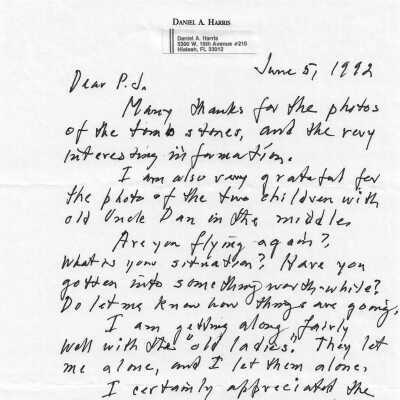 DANIEL A. HARRIS
Daniel A. Harris
5300 W. 16th Avenue #215
Hialeah, FL 33012
June 5, 1992
Dear P.J.
Many thanks for the photos
of the tomb stones, and the very
interesting information.
I am also very grateful for
the photo of the two children with
old Uncle Dan in the middle.
Are you flying again?
What is your situation? Have you
gotten into something worth-while?
Do let me know how things are going.
I am getting along fairly
well with the "old ladies." They let
me alone, and I let them alone.
I certainly appreciated the